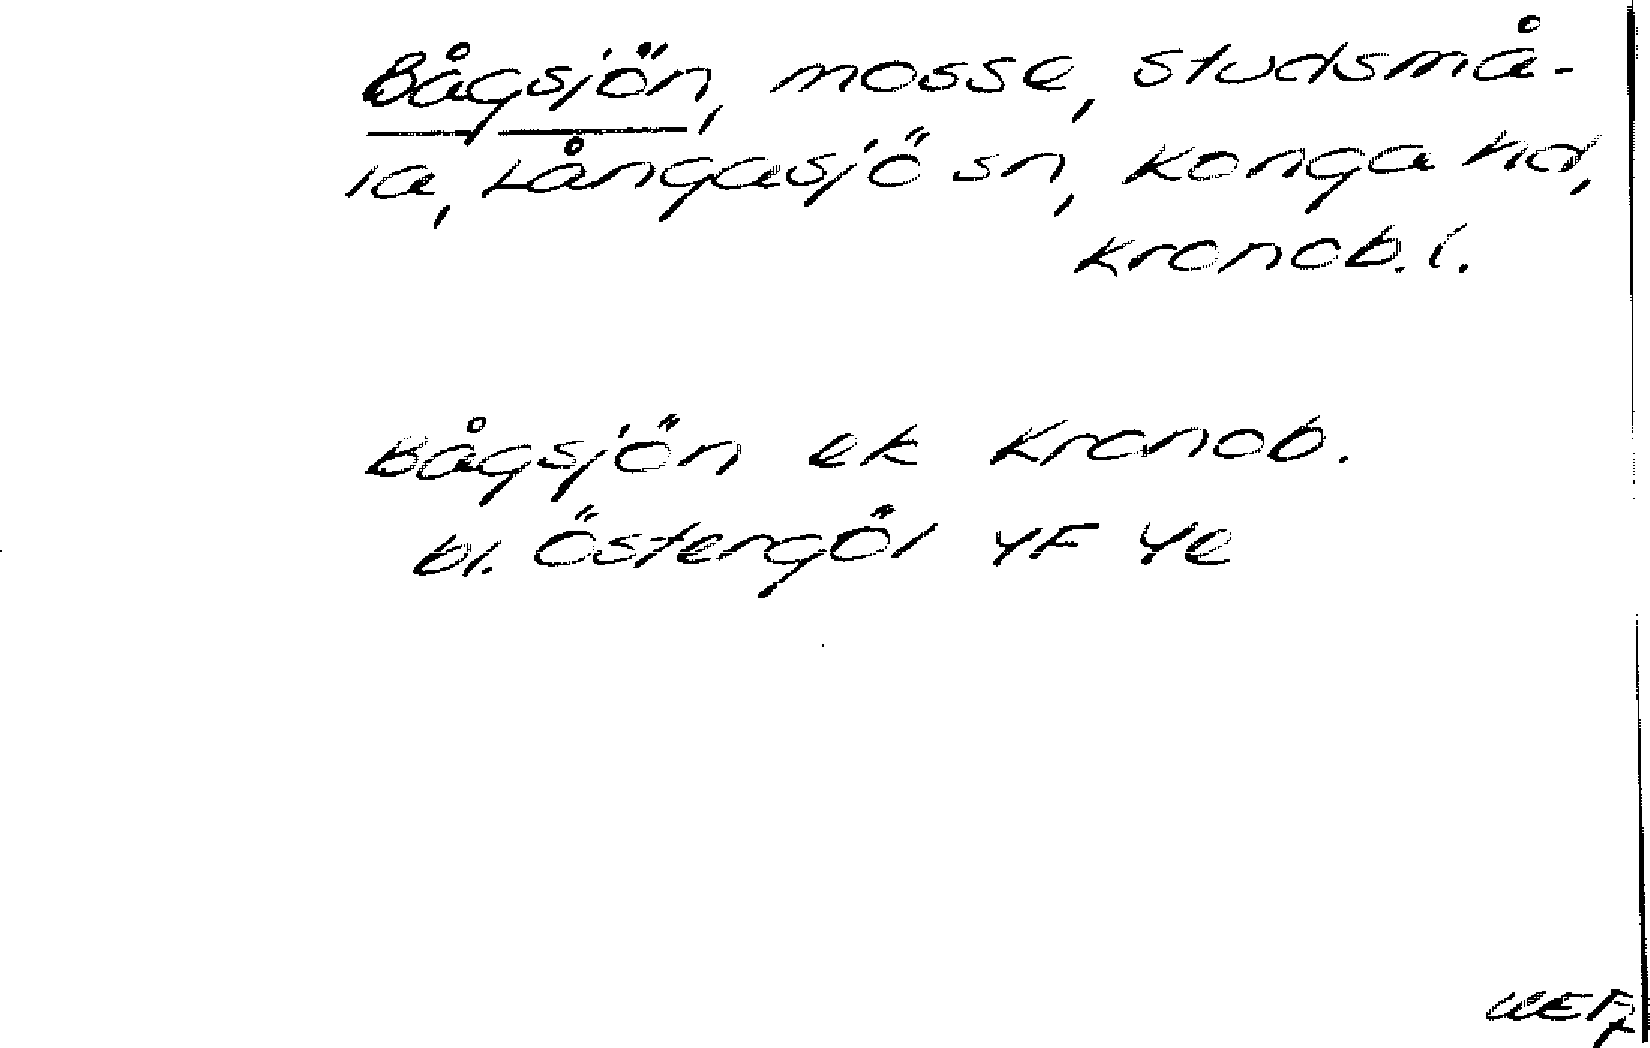 Bågsjön, mosse, studsmå-
la, Långasjö sn, Konga hd,
Kronob. l.
Bågsjön ek Kronob.
bl. Östergöl 4F 4e